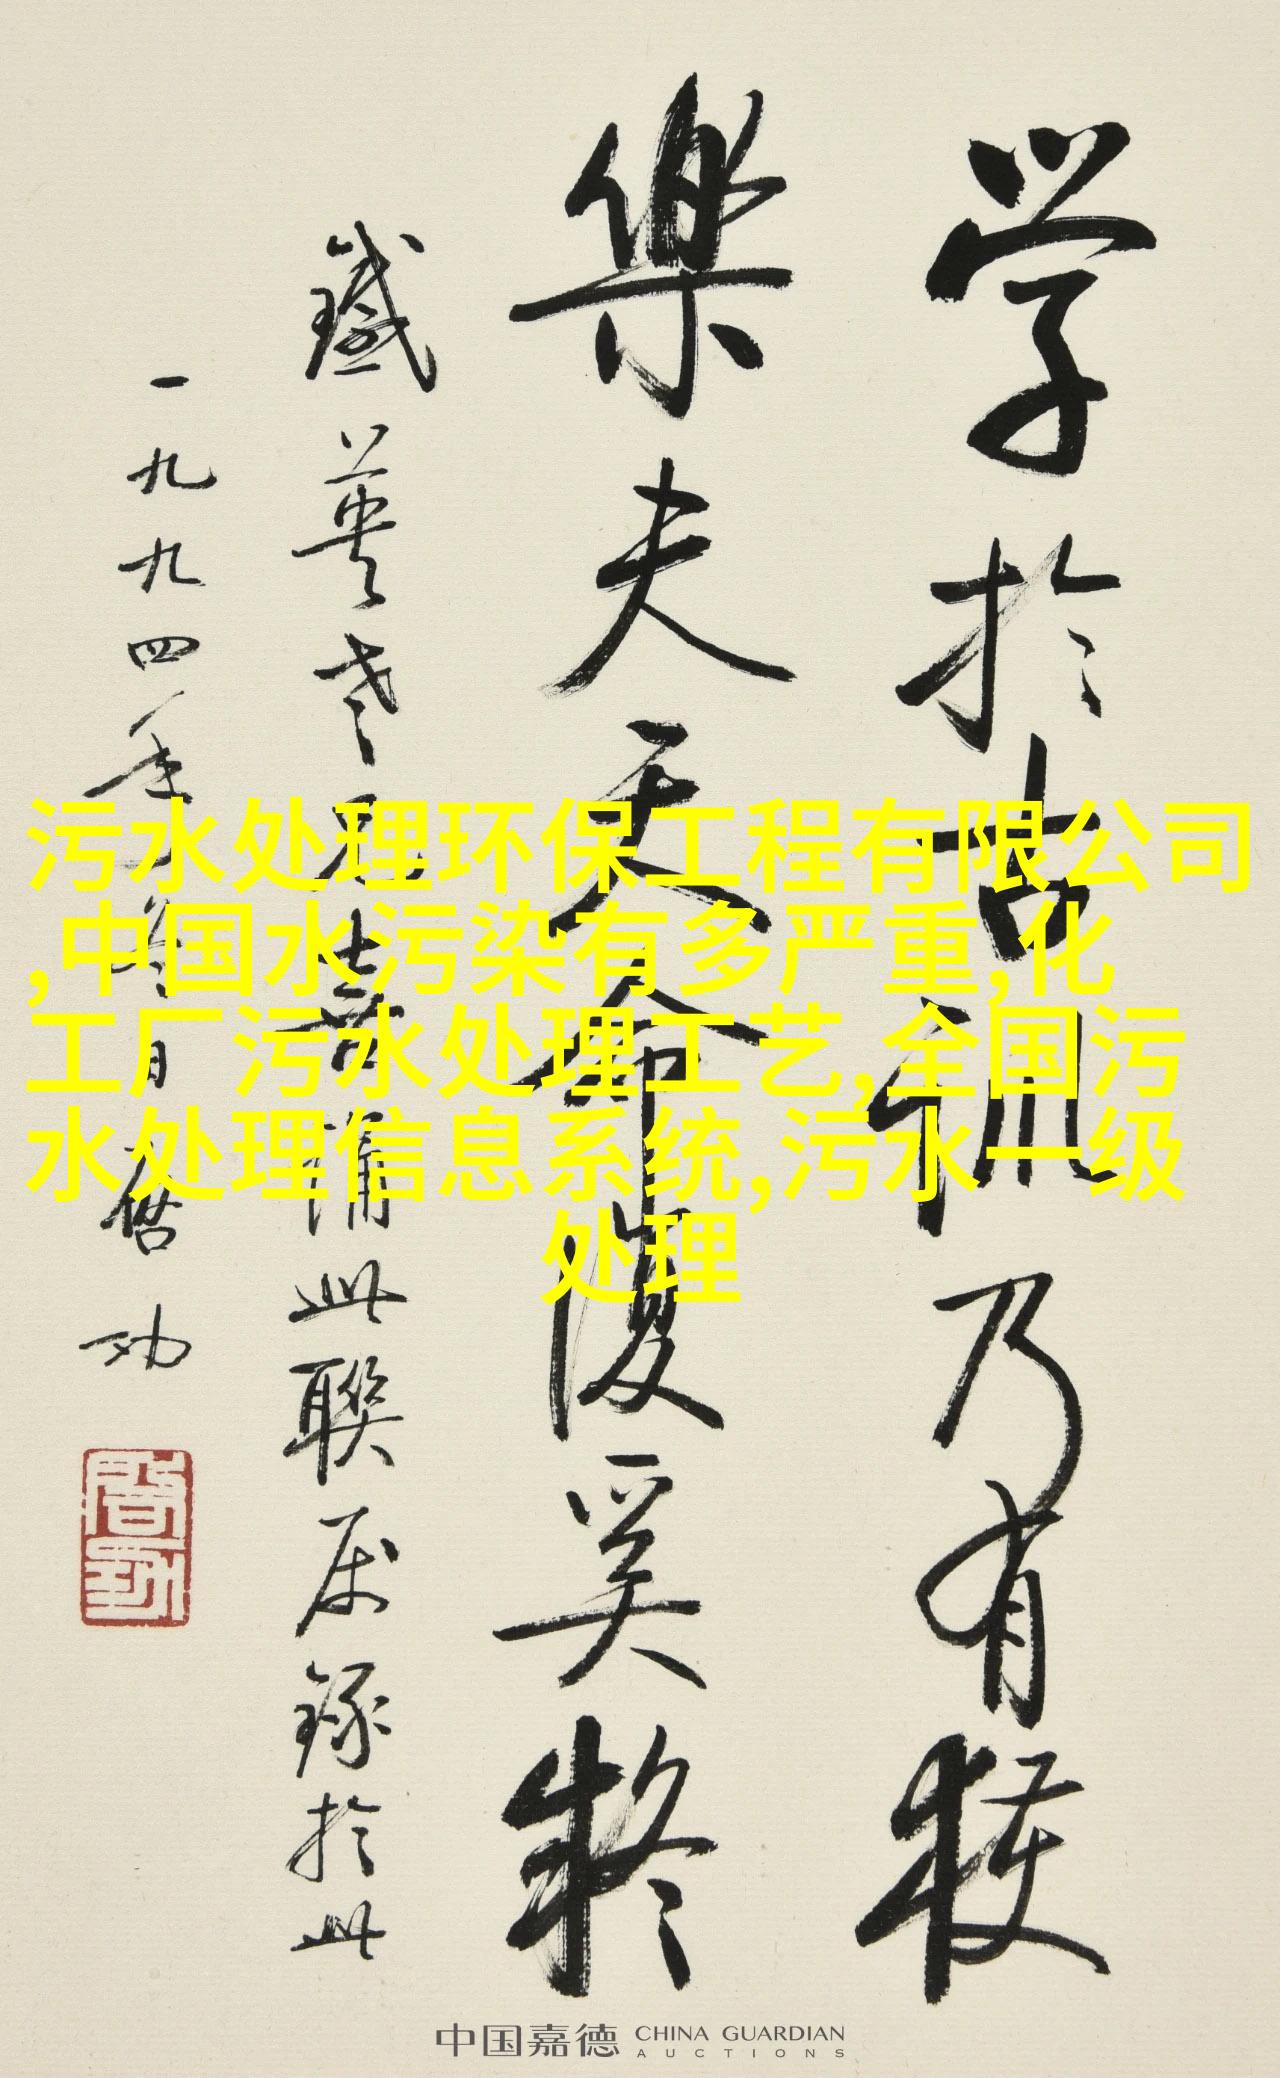 学於古训乃有获
樂夫天命復奚疑
鐵英老兄喜誦此聯属錄於此
一九九四年 日启功
污水处理环保工程有限公司
,中国水污染有多严重,化
工厂污水处理工艺,全国污
水处理信息系统,污水一级
处理
中国嘉德 CHINA GUARDIAN
AUCTIONS